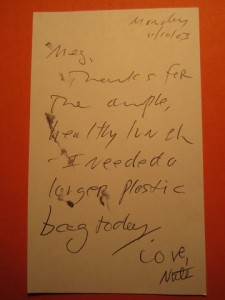 Monday
11/10/03
Meg,
Thanks for
the ample,
healthy lunch
- I needed a
larger plastic
bag today
Love,
Nate